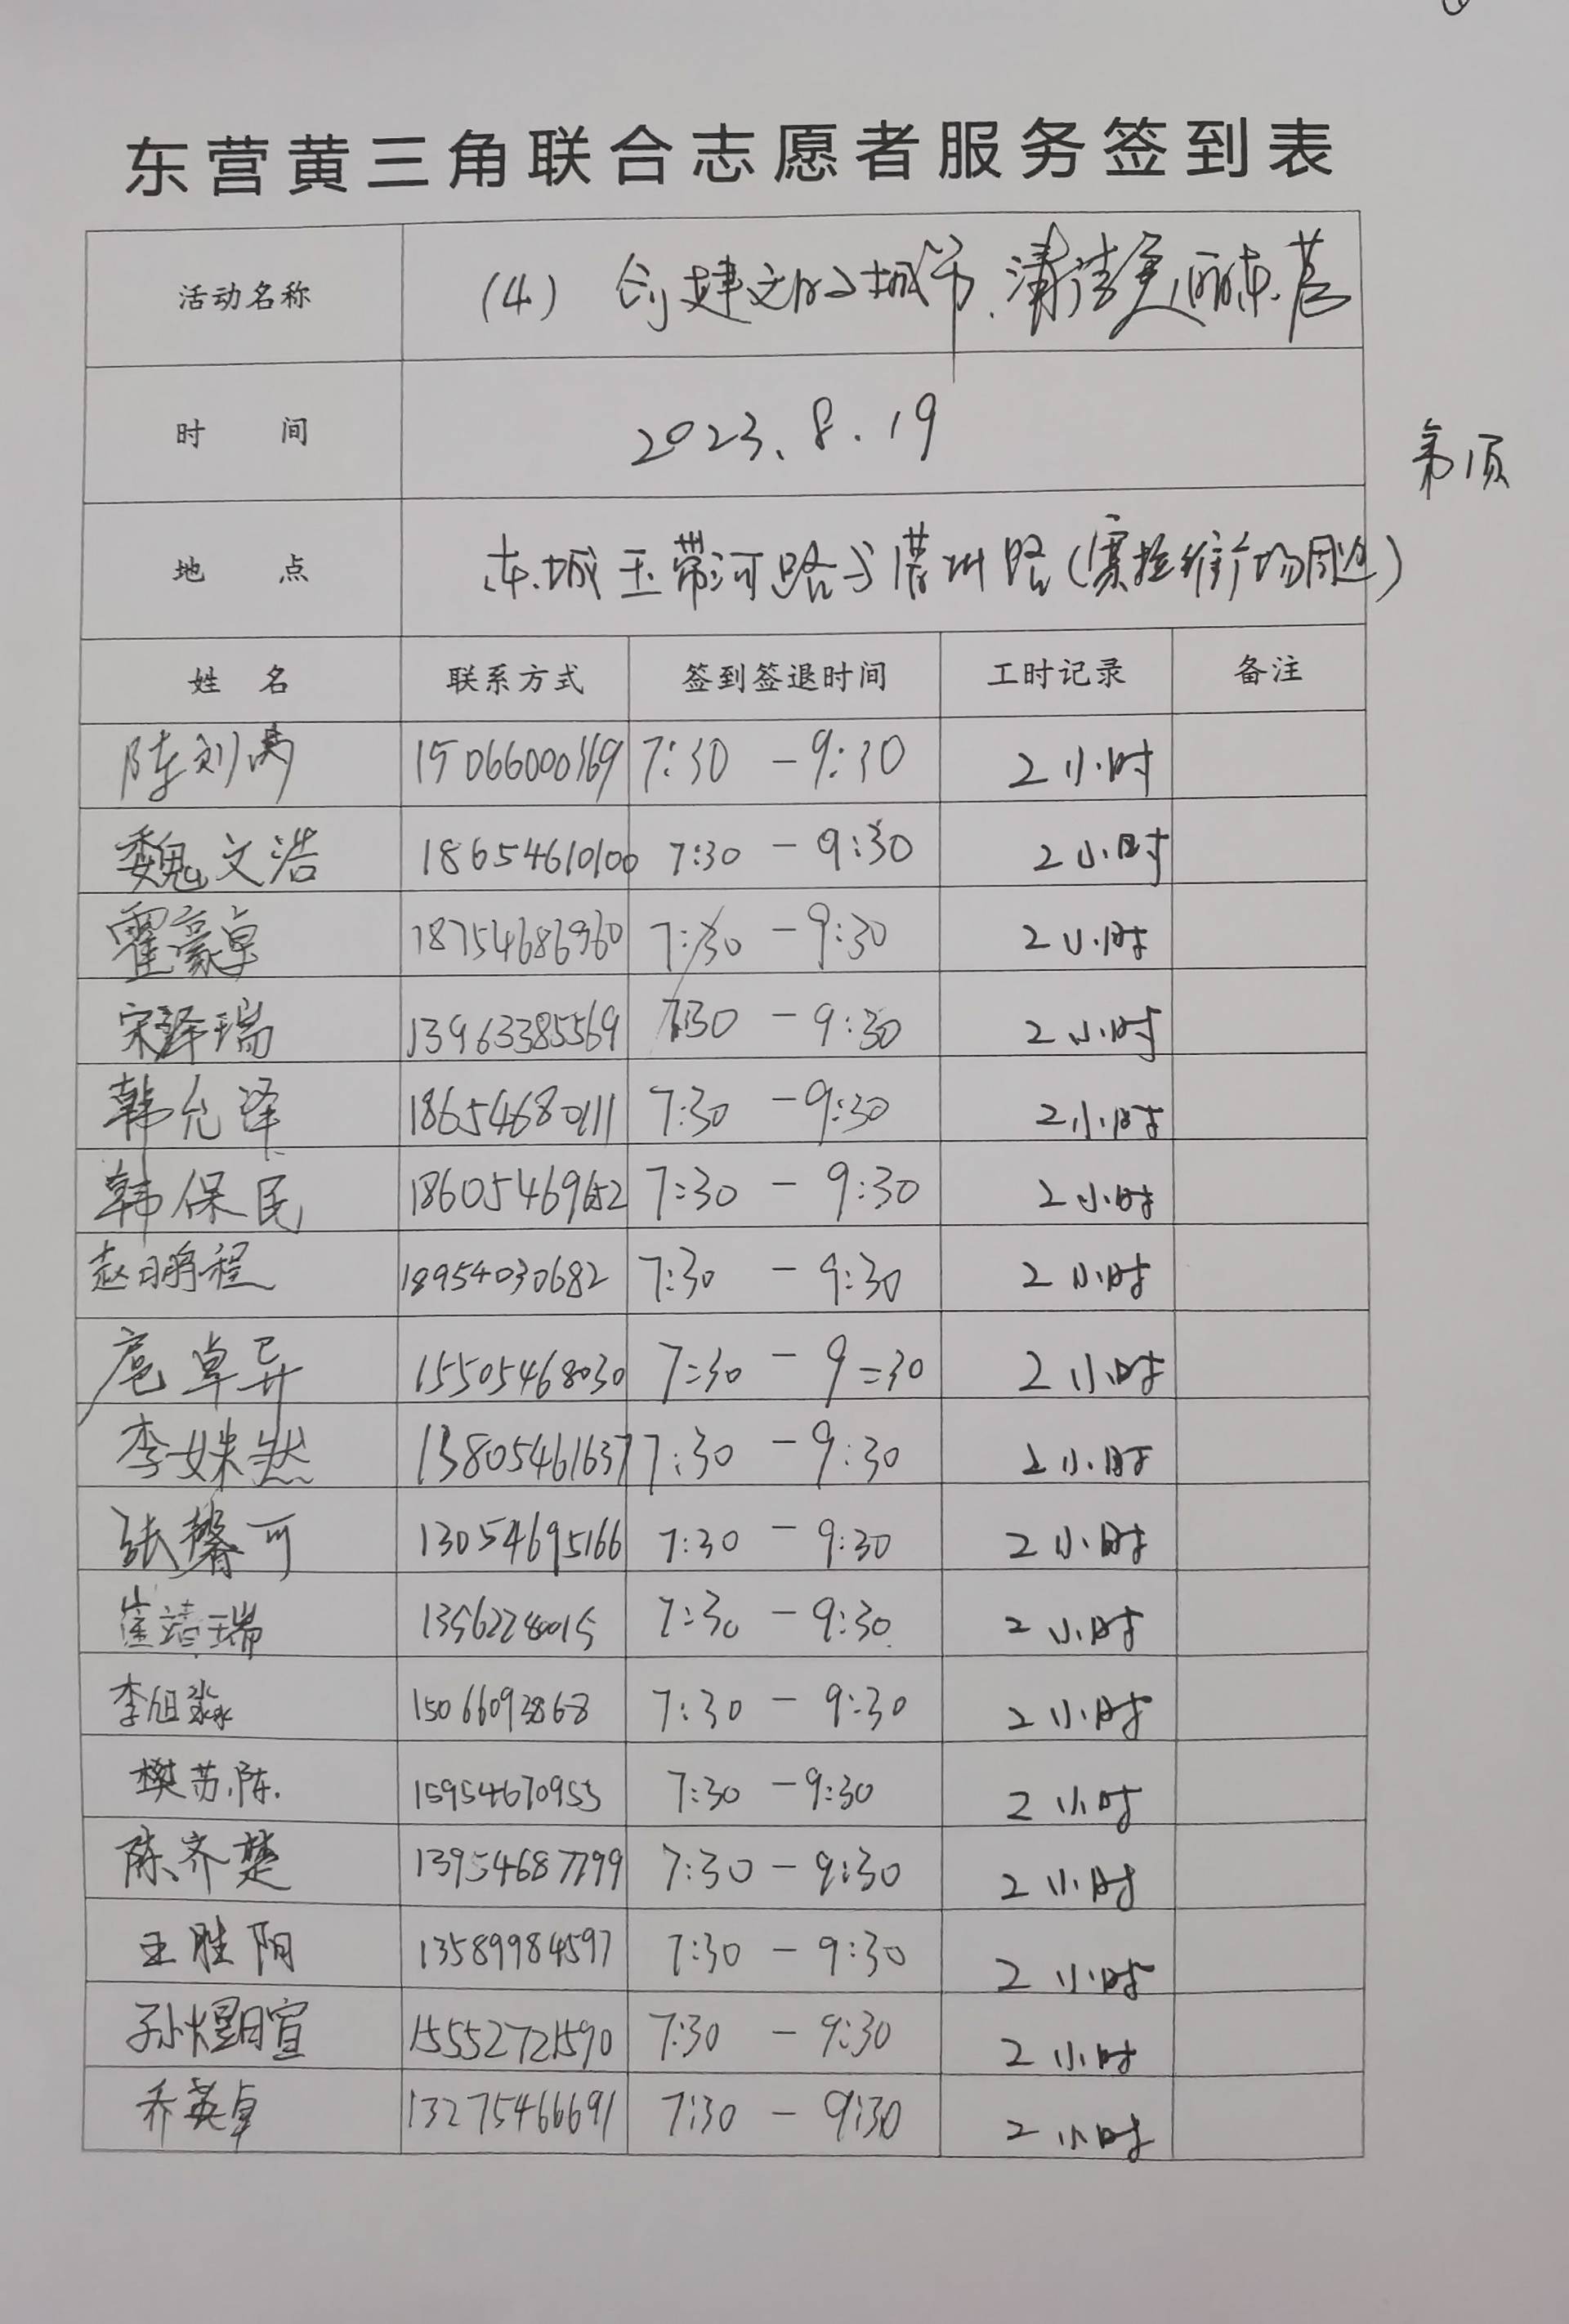 东营黄三角联合志愿者服务签到表
活动名称 (4) 创建文明城市.清洁美丽东营
时 间 2023.8.19
第1页
地 点 东城玉带河路与 州路(赛拉维广场周边)
姓 名 联系方式 签到签退时间 工时记录 备注
陈刘禹 15066000369 7:30 - 9:30 2小时
魏文浩 18654610100 7:30 - 9:30 2小时
霍豪卓 18754686960 7:30 - 9:30 2小时
宋泽瑞 13963385569 7:30 - 9:30 2小时
韩允泽 18654680111 7:30 - 9:30 2小时
韩保民 18605469652 7:30 - 9:30 2小时
赵明鹏程 18954030682 7:30 - 9:30 2小时
扈卓异 15505468030 7:30 - 9:30 2小时
李姝燃 13805461637 7:30 - 9:30 2小时
张馨可 13054695166 7:30 - 9:30 2小时
崔靖瑞 13562280015 7:30 - 9:30 2小时
李旭淼 15066093868 7:30 - 9:30 2小时
樊苏陈. 15954670955 7:30 - 9:30 2小时
陈齐楚 13954687799 7:30 - 9:30 2小时
王胜阳 13589984597 7:30 - 9:30 2小时
孙煜暄 15552721590 7:30 - 9:30 2小时
乔英卓 13275466691 7:30 - 9:30 2小时